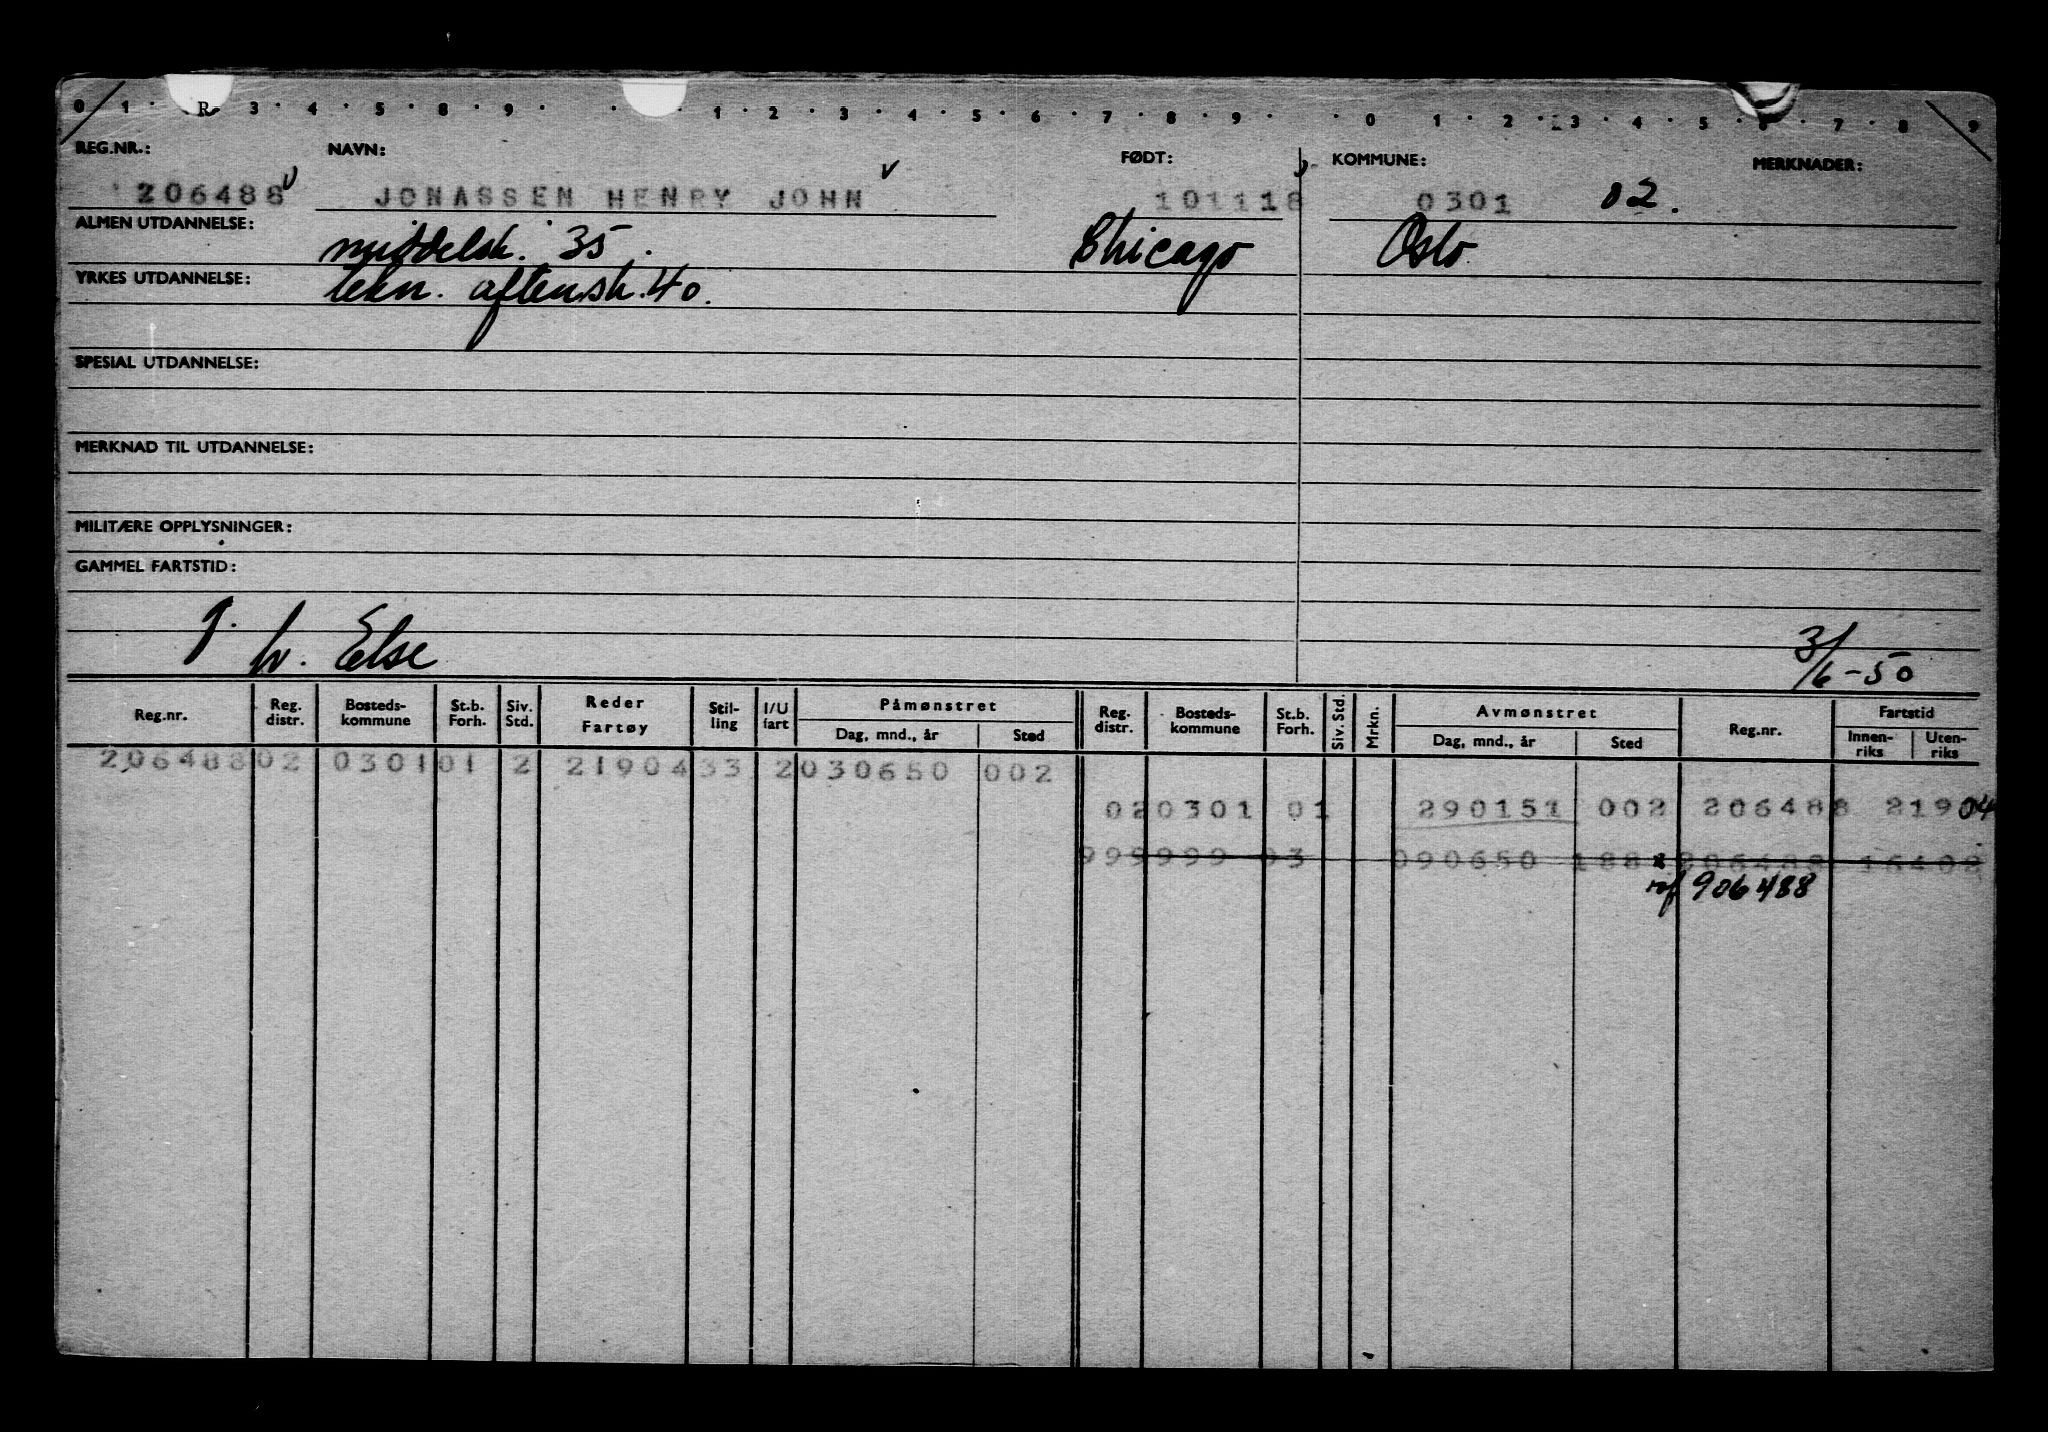 0 1 · R- 3 · 4 · 5 · 8 · 9 · · · 1 · 2 · 3 · 4 · 5 · 6 · 7 · 8 · 9 · · 0 · 1 · 2 · 3 · 4 · 5 · 6 · 7 · 8 9
REG.NR.: NAVN: FØDT: KOMMUNE: MERKNADER:
206488 v JONASSEN HENRY JOHN v 101118 0301 02.
ALMEN UTDANNELSE: middelsk. 35. Chicago Oslo
YRKES UTDANNELSE: tekn. aftensk. 40.
SPESIAL UTDANNELSE:
MERKNAD TIL UTDANNELSE:
MILITÆRE OPPLYSNINGER:
GAMMEL FARTSTID:
g. h. Else 3/6-50
Reg.nr. Reg. distr. Bosteds-kommune St.b. Forh. Siv. Std. Reder Fartøy Stil-ling I/U fart Påmønstret Dag, mnd., år Sted Reg. distr. Bosteds-kommune St.b. Forh. Siv. Std. Mrkn. Avmønstret Dag, mnd., år Sted Reg.nr. Fartstid Innen-riks Uten-riks
206488 02 0301 01 2 21904 33 2 030650 002
02 0301 01 290151 002 206488 21904
999999 03 090650 188 206488 16408
ref 906488